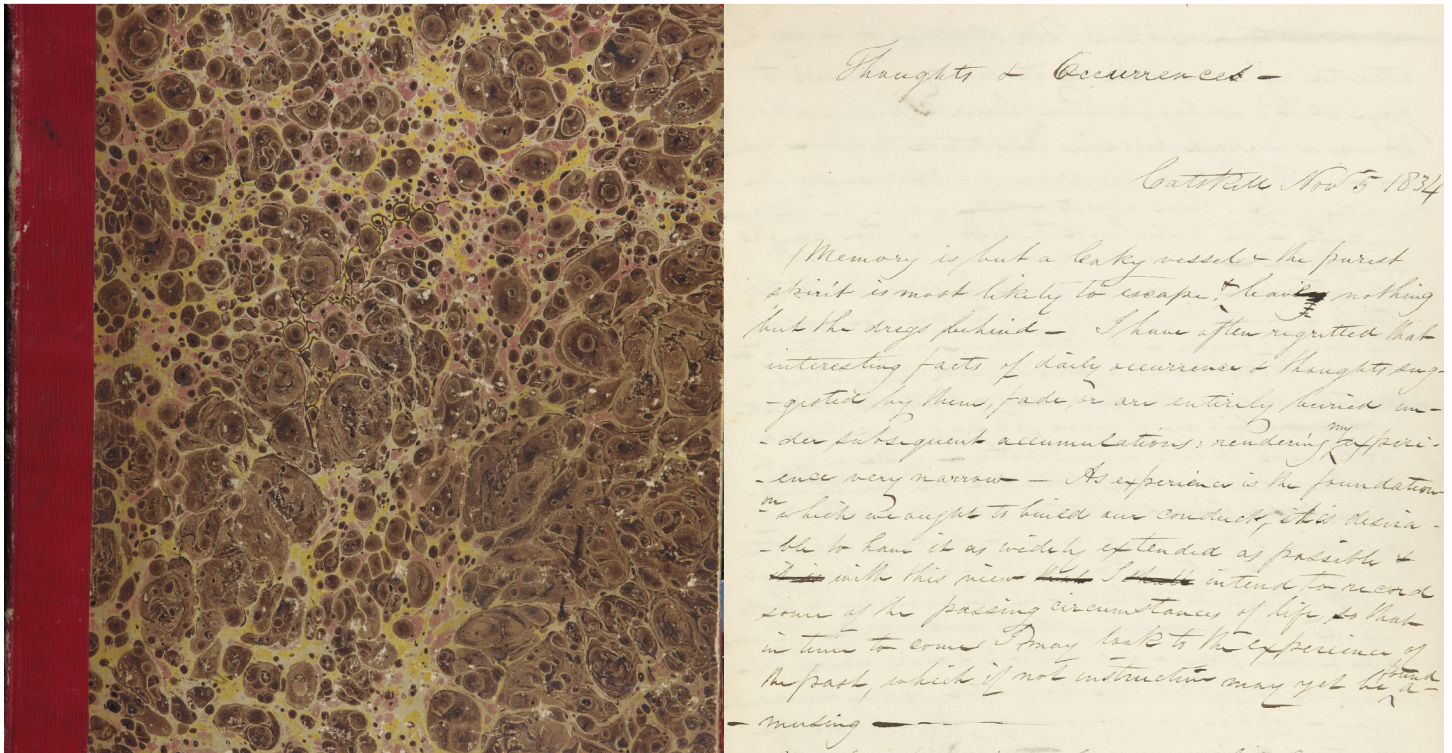 Thoughts & Occurrences —
Catskill Nov 5 1834
Memory is but a leaky vessel & the purest
spirit is most likely to escape: & leaves nothing
but the dregs behind — I have often regretted that
interesting facts of daily occurrence & thoughts sug-
-gested by them, fade, or are entirely buried un-
-der subsequent accumulations: rendering my experi-
-ence very narrow — As experience is the foundation
on which we ought to build our conduct, it is desira-
-ble to have it as widely extended as possible &
it is with this view that I shall intend to record
some of the passing circumstances of life, so that
in time to come I may look to the experience of
the past, which if not instructive may yet be found a-
-musing —